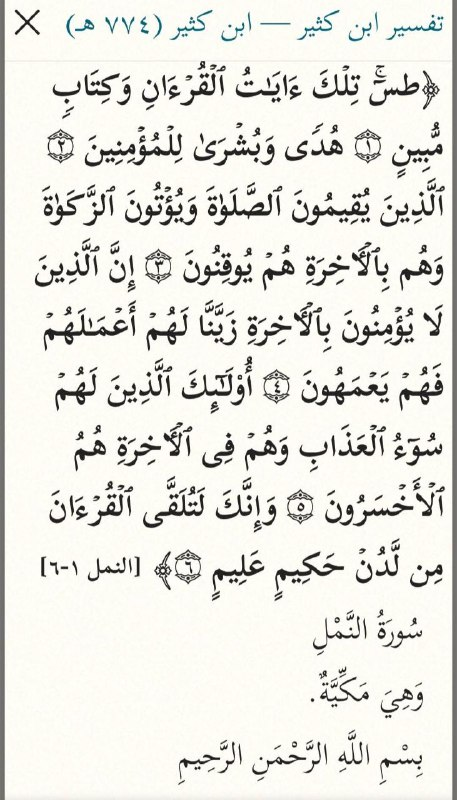 تفسير ابن كثير — ابن كثير (٧٧٤ هـ)
﴿طسۤۚ تِلۡكَ ءَایَـٰتُ ٱلۡقُرۡءَانِ وَكِتَابࣲ
مُّبِینٍ ۝١ هُدࣰى وَبُشۡرَىٰ لِلۡمُؤۡمِنِینَ ۝٢
ٱلَّذِینَ یُقِیمُونَ ٱلصَّلَوٰةَ وَیُؤۡتُونَ ٱلزَّكَوٰةَ
وَهُم بِٱلۡـَٔاخِرَةِ هُمۡ یُوقِنُونَ ۝٣ إِنَّ ٱلَّذِینَ
لَا یُؤۡمِنُونَ بِٱلۡـَٔاخِرَةِ زَیَّنَّا لَهُمۡ أَعۡمَـٰلَهُمۡ
فَهُمۡ یَعۡمَهُونَ ۝٤ أُو۟لَـٰۤىِٕكَ ٱلَّذِینَ لَهُمۡ
سُوۤءُ ٱلۡعَذَابِ وَهُمۡ فِی ٱلۡـَٔاخِرَةِ هُمُ
ٱلۡأَخۡسَرُونَ ۝٥ وَإِنَّكَ لَتُلَقَّى ٱلۡقُرۡءَانَ
مِن لَّدُنۡ حَكِیمٍ عَلِیمٍ ۝٦﴾ [النمل ١-٦]
سُورَةُ النَّمْلِ
وَهِيَ مَكِّيَّةٌ.
بِسْمِ اللَّهِ الرَّحْمَنِ الرَّحِيمِ